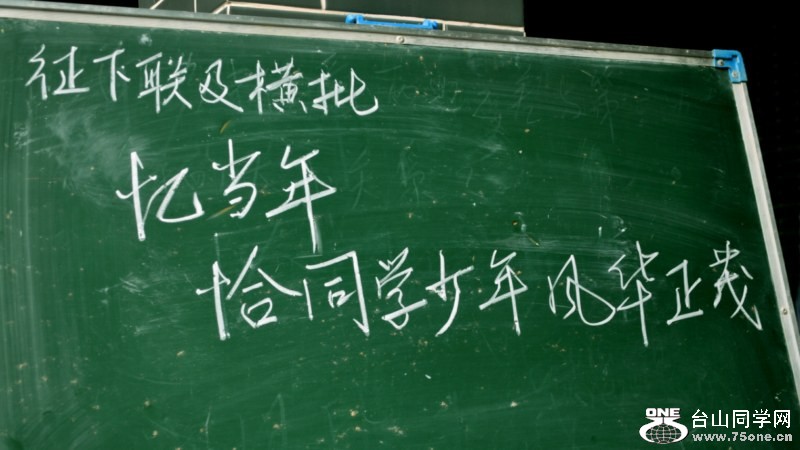 征下联及横批
忆当年
恰同学少年风华正茂
ONE
台山同学网
www.75one.cn